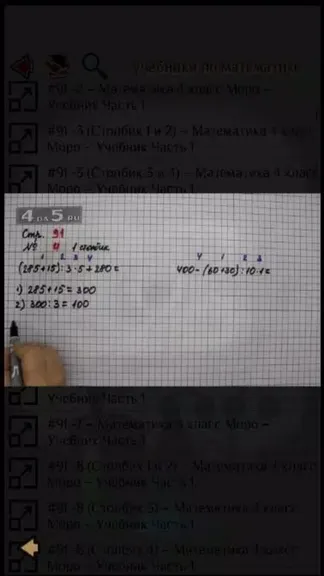 учебники по математике
#91 -2 – Математика 4 класс Моро –
Учебник Часть 1
#91 -3 (Столбик 1 и 2) – Математика 4 класс
Моро – Учебник Часть 1
Математика 4 класс
Моро – Учебник Часть 1
4 DA 5 RU
Стр. 91
№ 1 столбик
1 2 3 4
(285+15):3·5+280=
1) 285+15=300
2) 300:3=100
4 1 2 3
400-(60+30):10·1=
Учебник Часть 1
#91 -7 – Математика 4 класс Моро –
Учебник Часть 1
#91 -8 (Столбик 1 и 2) – Математика 4 класс
Моро – Учебник Часть 1
Математика 4 класс
Моро – Учебник Часть 1
Математика 4 класс
Моро – Учебник Часть 1